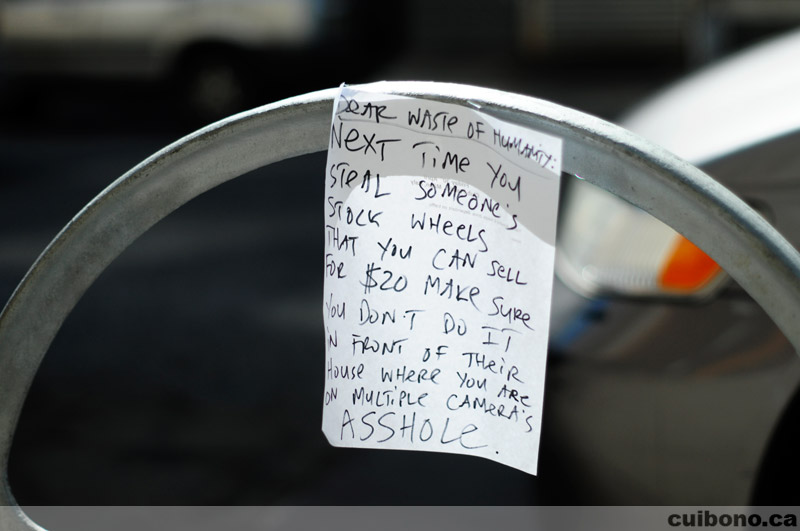 DEAR WASTE OF HUMANITY:
NEXT TIME YOU
STEAL SOMEONE'S
STOCK WHEELS
THAT YOU CAN SELL
FOR $20 MAKE SURE
YOU DON'T DO IT
IN FRONT OF THEIR
HOUSE WHERE YOU ARE
ON MULTIPLE CAMERA'S
ASSHOLE.
cuibono.ca